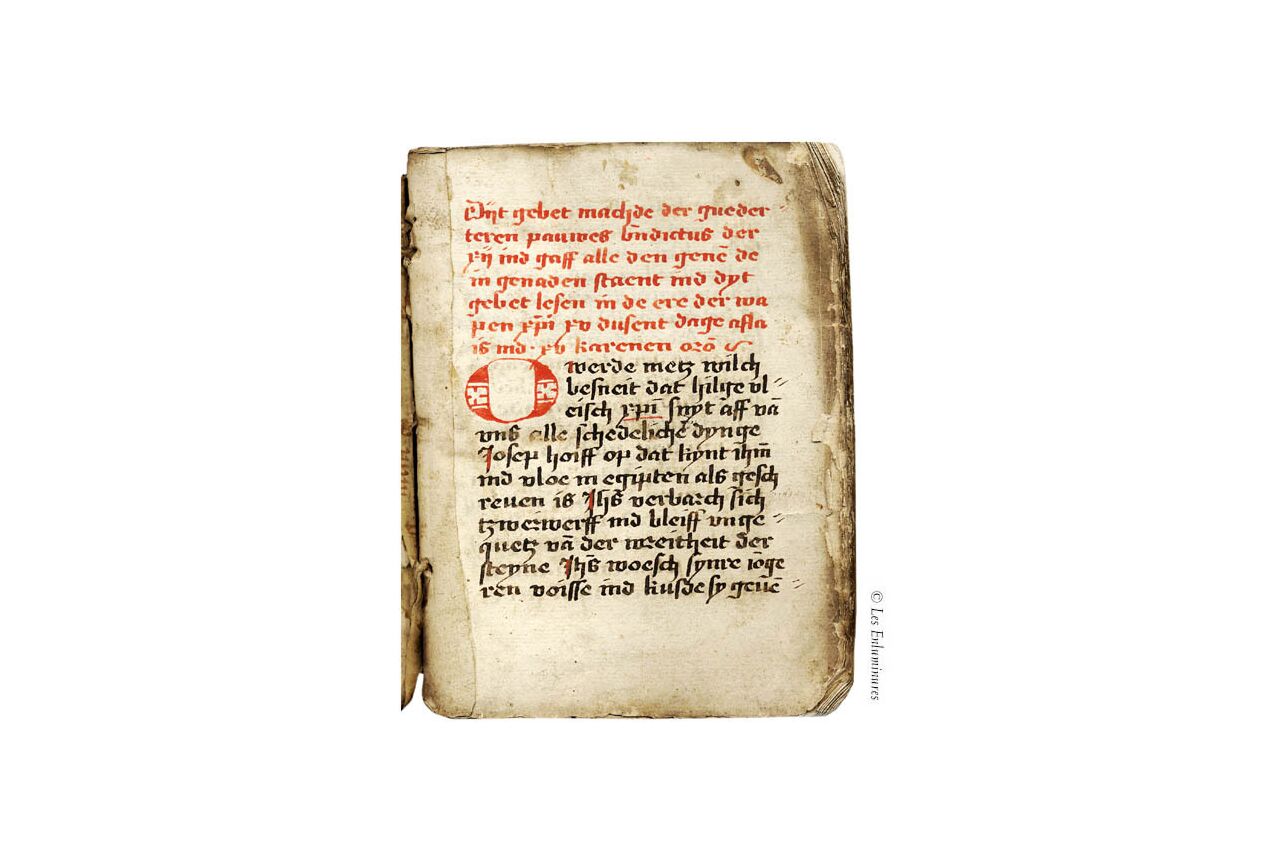 Dijt gebet machde der gueder
teren pauwes bn̄dictus der
xij ind gaff alle den genē de
in genaden staent ind dyt
gebet lesen in de ere der wa
pen xp̄i xv dusent dage afla
is ind · xv karenen orō
O werde metz wilch
besneit dat hilge vl
eisch xp̄i snyt aff vā
vns alle schedelichē dynge
Josep hoiff op dat kynt ihm̄
ind vloe in egipten als gesch
reuen is Jhs̄ verbarch sich
tzweiwerff ind bleiff vnge
quetz vā der wreitheit der
steyne Jhs̄ woesch synre iōge
ren voisse ind kusde sy geuē
© Les Enluminures